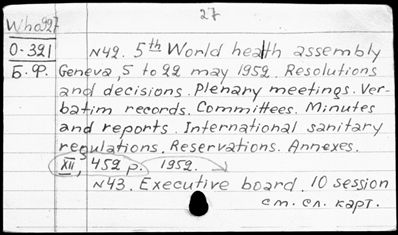 27
Who 927
0-321
Б. Ф.
N42. 5th World health assembly
Geneva, 5 to 22 may 1952. Resolutions
and decisions. Plenary meetings. Ver-
batim records. Committees. Minutes
and reports. International sanitary
regulations. Reservations. Annexes.
XII, 452 p. 1952.
N43. Executive board. 10 session
см. сл. карт.